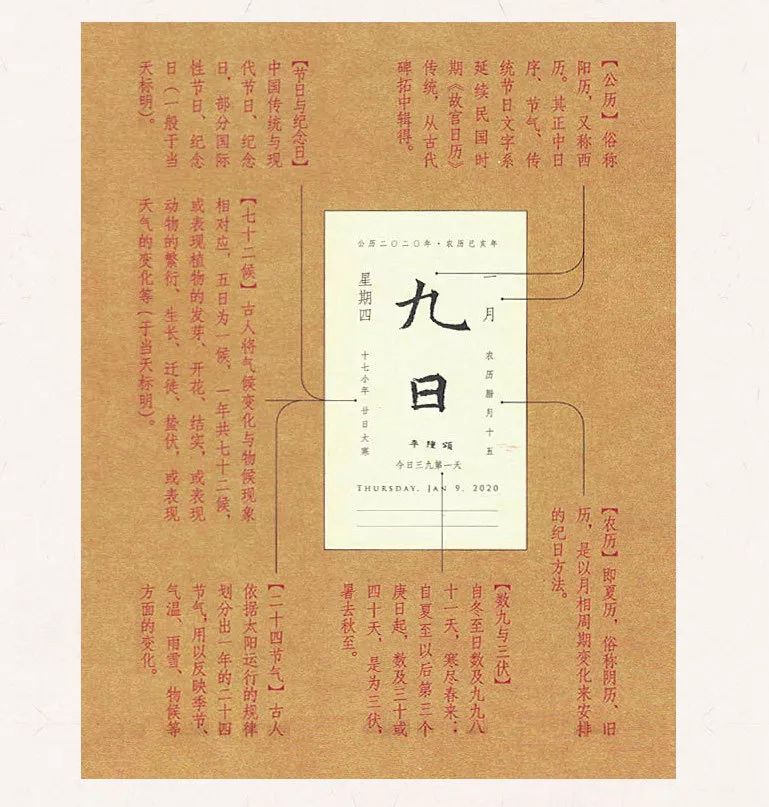 【公历】俗称
阳历，又称西
历。其正中日
序、节气、传
统节日文字系
延续民国时
期《故宫日历》
传统，从古代
碑拓中辑得。
【节日与纪念日】
中国传统与现
代节日、纪念
日，部分国际
性节日、纪念
日（一般于当
天标明）。
【七十二候】古人将气候变化与物候现象
相对应，五日为一候，一年共七十二候，
或表现植物的发芽、开花、结实，或表现
动物的繁衍、生长、迁徙、蛰伏，或表现
天气的变化等（于当天标明）。
公历二〇二〇年·农历己亥年
一月
九日
星期四
农历腊月十五
十七小年 廿日大寒
今日三九第一天
THURSDAY, JAN 9, 2020
【农历】即夏历，俗称阴历、旧
历，是以月相周期变化来安排
的纪日方法。
【数九与三伏】
自冬至日数及九九八
十一天，寒尽春来；
自夏至以后第三个
庚日起，数及三十或
四十天，是为三伏，
暑去秋至。
【二十四节气】古人
依据太阳运行的规律
划分出一年的二十四
节气，用以反映季节、
气温、雨雪、物候等
方面的变化。